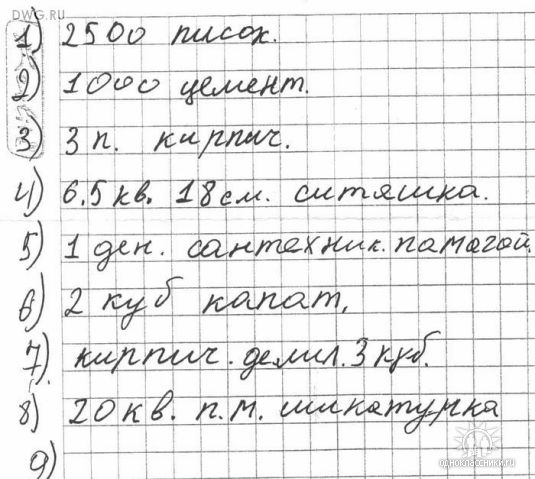 DWG.RU
1) 2500 писок.
2) 1000 цемент.
3) 3 п. кирпич.
4) 6.5 кв. 18 см. ситяшка.
5) 1 ден. сантехник. памагай.
6) 2 куб капат.
7) кирпич. делил. 3 куб.
8) 20 кв. п.м. шикатурка
9)
одноклассники.ru